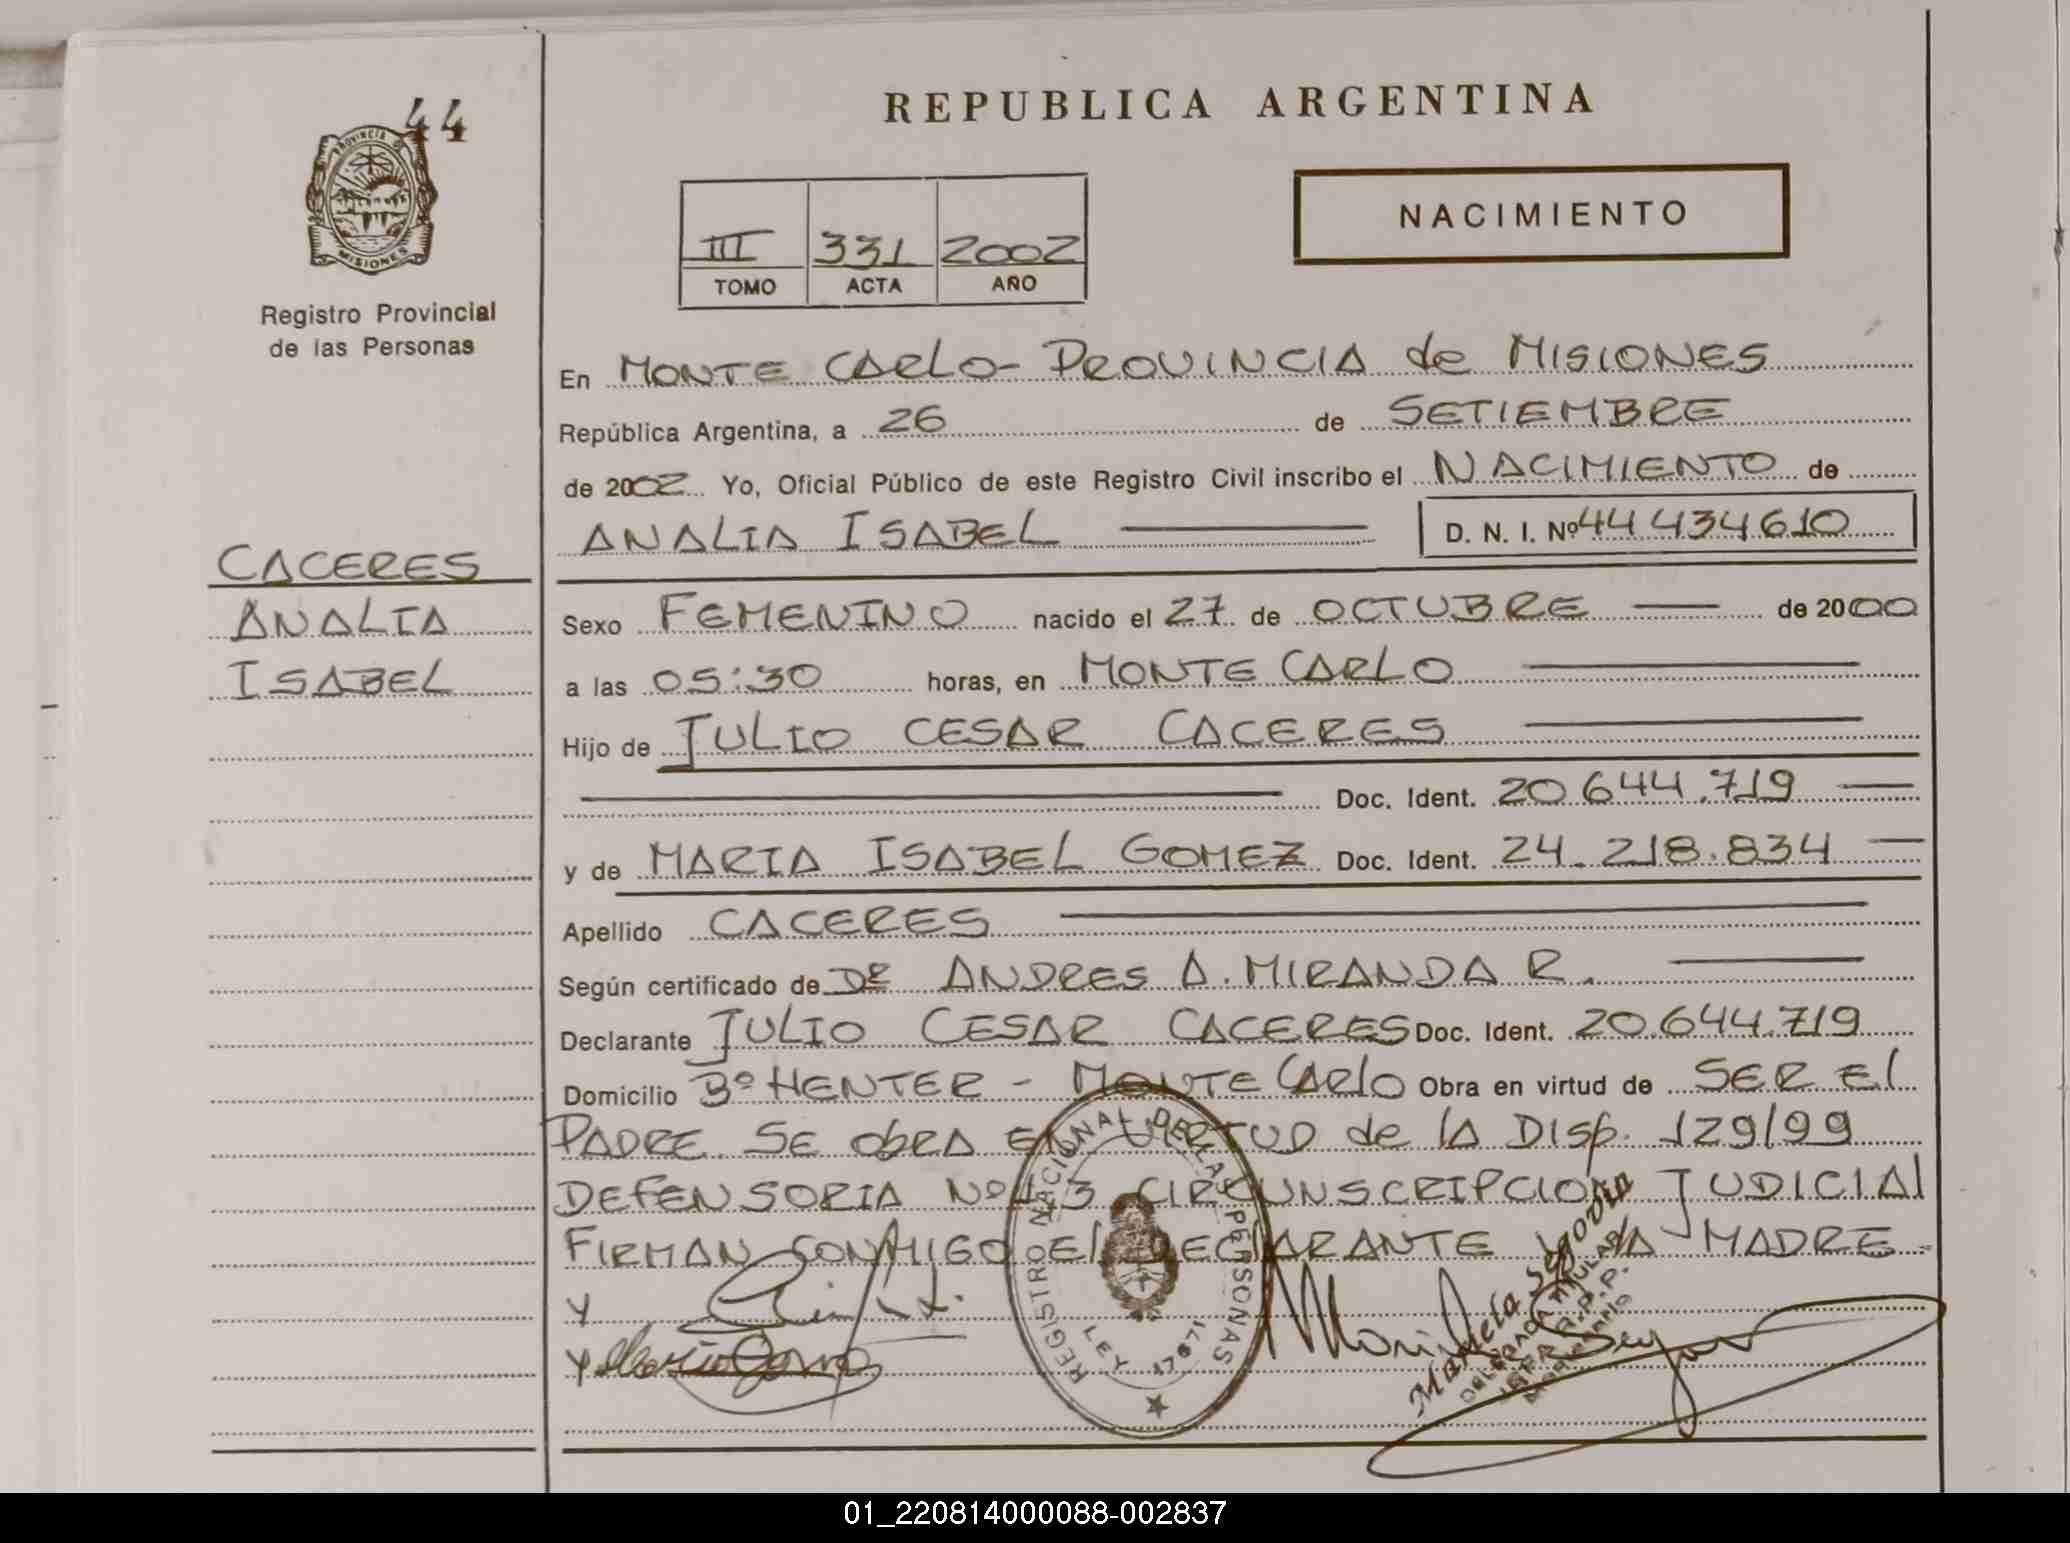 44
PROVINCIA DE
MISIONES
Registro Provincial
de las Personas
CACERES
ANALIA
ISABEL
REPUBLICA ARGENTINA
NACIMIENTO
III 331 2002
TOMO ACTA AÑO
En MONTE CARLO - PROVINCIA de MISIONES
República Argentina, a 26 de SETIEMBRE
de 2002 Yo, Oficial Público de este Registro Civil inscribo el NACIMIENTO de
ANALIA ISABEL D. N. I. Nº 44 434610
Sexo FEMENINO nacido el 27 de OCTUBRE de 2000
a las 05:30 horas, en MONTE CARLO
Hijo de JULIO CESAR CACERES
Doc. Ident. 20.644.719
y de MARIA ISABEL GOMEZ Doc. Ident. 24.218.834
Apellido CACERES
Según certificado de Dr ANDRES A. MIRANDA R.
Declarante JULIO CESAR CACERES Doc. Ident. 20.644.719
Domicilio Bº HENTER - MONTE CARLO Obra en virtud de SER EL
PADRE. SE ObRA EN VIRTUD de lA DISP. 129/99
DEFENSORIA Nº 1 3 CIRCUNSCRIPCION JUDICIAL
FIRMAN CONMIGO El DECLARANTE Y LA MADRE
y
y
REGISTRO NACIONAL DE LAS PERSONAS
LEY 17671
Segovia
DELEGADA TITULAR
R.P.P.
01_220814000088-002837